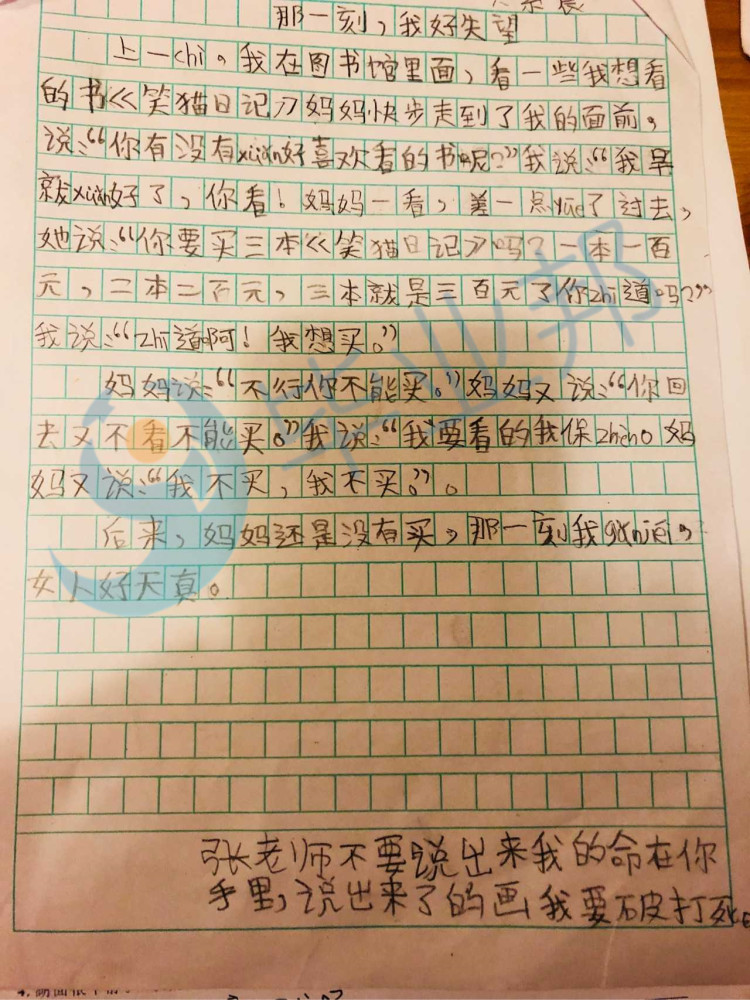 那一刻,我好失望
上一chi。我在图书馆里面,看一些我想看
的书《笑猫日记》妈妈快步走到了我的面前,
说:“你有没有xuǎn好喜欢看的书呢?”我说:“我早
就xuǎn好了,你看!妈妈一看,差一点yūe了过去,
她说:“你要买三本《笑猫日记》吗?一本一百
元,二本二百元,三本就是三百元了你zhi道吗?”
我说:“zhi道啊!我想买。”
妈妈说:“不行你不能买。”妈妈又说:“你回
去又不看不能买。”我说:“我要看的我保zhèn。妈
妈又说:“我不买,我不买。”。
后来,妈妈还是没有买,那一刻我gǎnjué,
女人好天真。
张老师不要说出来我的命在你
手里,说出来了的画我要破打死
毕业邦